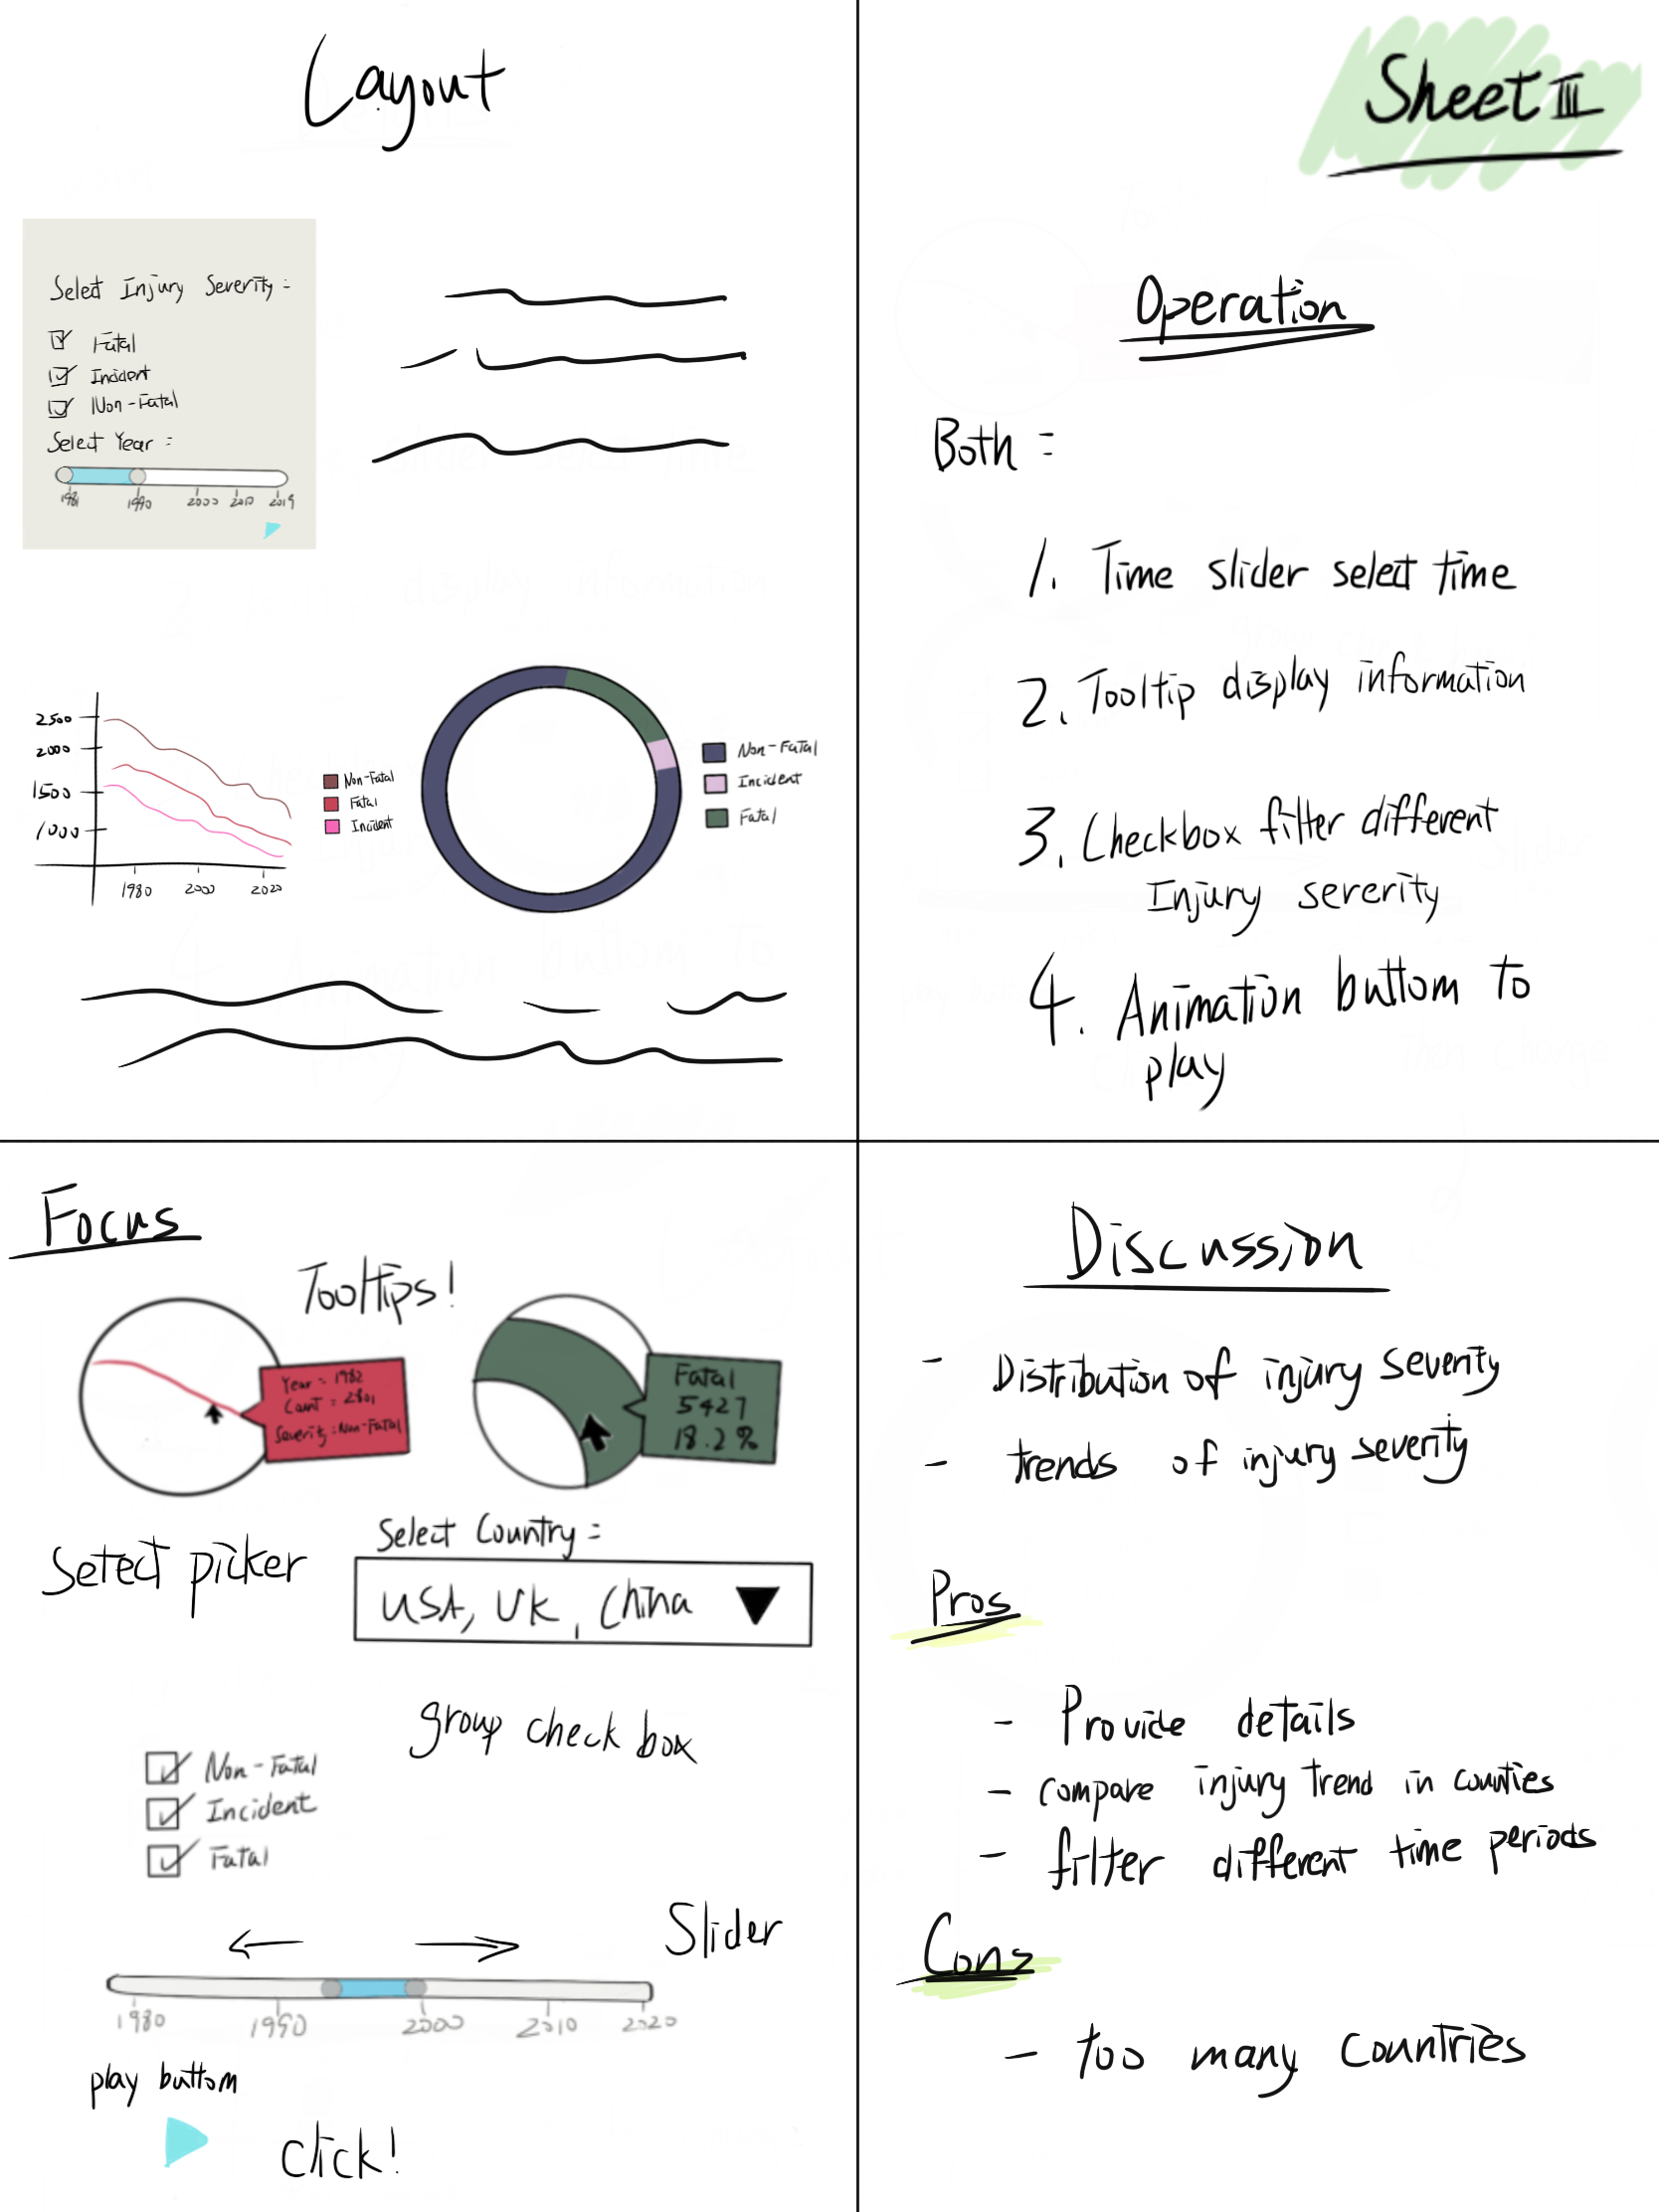 Layout
Select Injury Severity =
Fatal
Incident
Non-Fatal
Select Year =
1981 1990 2000 2010 2019
2500
2000
1500
1000
1980 2000 2020
Non-Fatal
Fatal
Incident
Non-Fatal
Incident
Fatal
Sheet III
Operation
Both =
1. Time slider select time
2. Tooltip display information
3. Checkbox filter different
Injury sererity
4. Animation buttom to
play
Focus
Tooltips!
Year = 1982
Count = 2801
Severity: Non-Fatal
Fatal
5427
18.2%
Setect picker
Select Country =
USA, UK, China
group check box
Non-Fatal
Incident
Fatal
Slider
1980 1990 2000 2010 2020
play buttom
click!
Discussion
- Distribution of injury severity
- trends of injury severity
Pros
- Provide details
- compare injury trend in counties
- filter different time periods
Cons
- too many countries